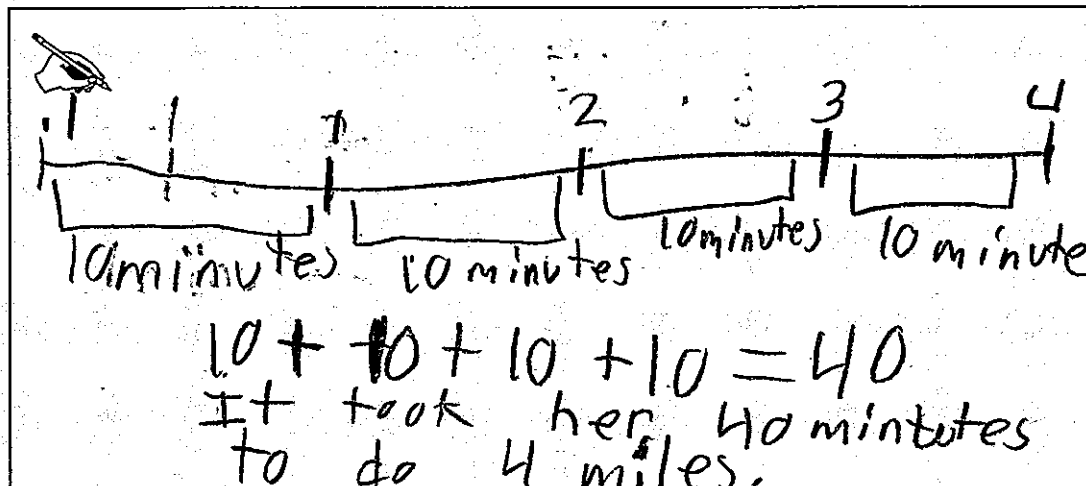 1 1 1 2 3 4
10 minutes 10 minutes 10 minutes 10 minute
10 + 10 + 10 + 10 = 40
It took her 40 mintutes
to do 4 miles.